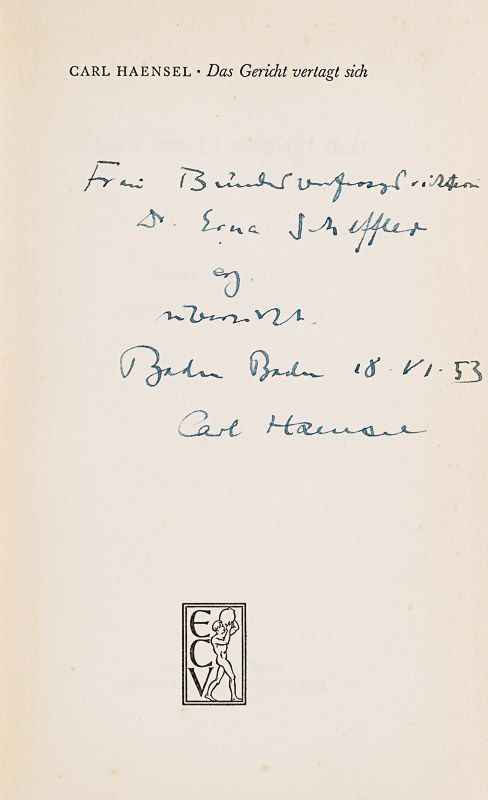 CARL HAENSEL • Das Gericht vertagt sich
Frau Bundesverfassungsrichterin
Dr. Erna Scheffler
überreicht.
Baden Baden 18 VI. 53
Carl Haensel
E
C
V